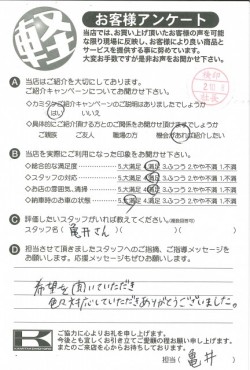 軽
お客様アンケート
当店では、お買い上げ頂いたお客様の声を可能
な限り現場に反映し、お客様により良い商品と
サービスを提供する事に努めています。
大変お手数ですが是非お声をお聞かせ下さい。
A 当店はご紹介を大切にしております。
ご紹介キャンペーンについてお聞かせ下さい。
◇カミタケご紹介キャンペーンのご説明はありましたでしょうか
はい いいえ
◇具体的にご紹介頂ける方とのご関係をお聞かせ頂けますでしょうか
ご親族 ご友人 職場の方 機会があれば紹介したい
B 当店を実際にご利用になった印象をお聞かせ下さい。
◇総合的な満足度 5.大満足 4.満足 3.ふつう 2.やや不満 1.不満
◇スタッフの対応 5.大満足 4.満足 3.ふつう 2.やや不満 1.不満
◇お店の雰囲気、清掃 5.大満足 4.満足 3.ふつう 2.やや不満 1.不満
◇納車時のお車の状態 5.大満足 4.満足 3.ふつう 2.やや不満 1.不満
C 評価したいスタッフがいれば教えてください。(複数回答可)
スタッフ名( 亀井さん )
D 担当させて頂きましたスタッフへのご指摘、ご指導メッセージを
お願いします。応援メッセージもぜひお願いします。
希望を聞いていただき
色々対応していただきありがとうございました。
K
ご協力に心よりお礼を申し上げます。
今後とも宜しくお引き立てご愛顧の程お願い申し上げます。
またのご来店を心からお待ちしております。
担当( 亀井 )